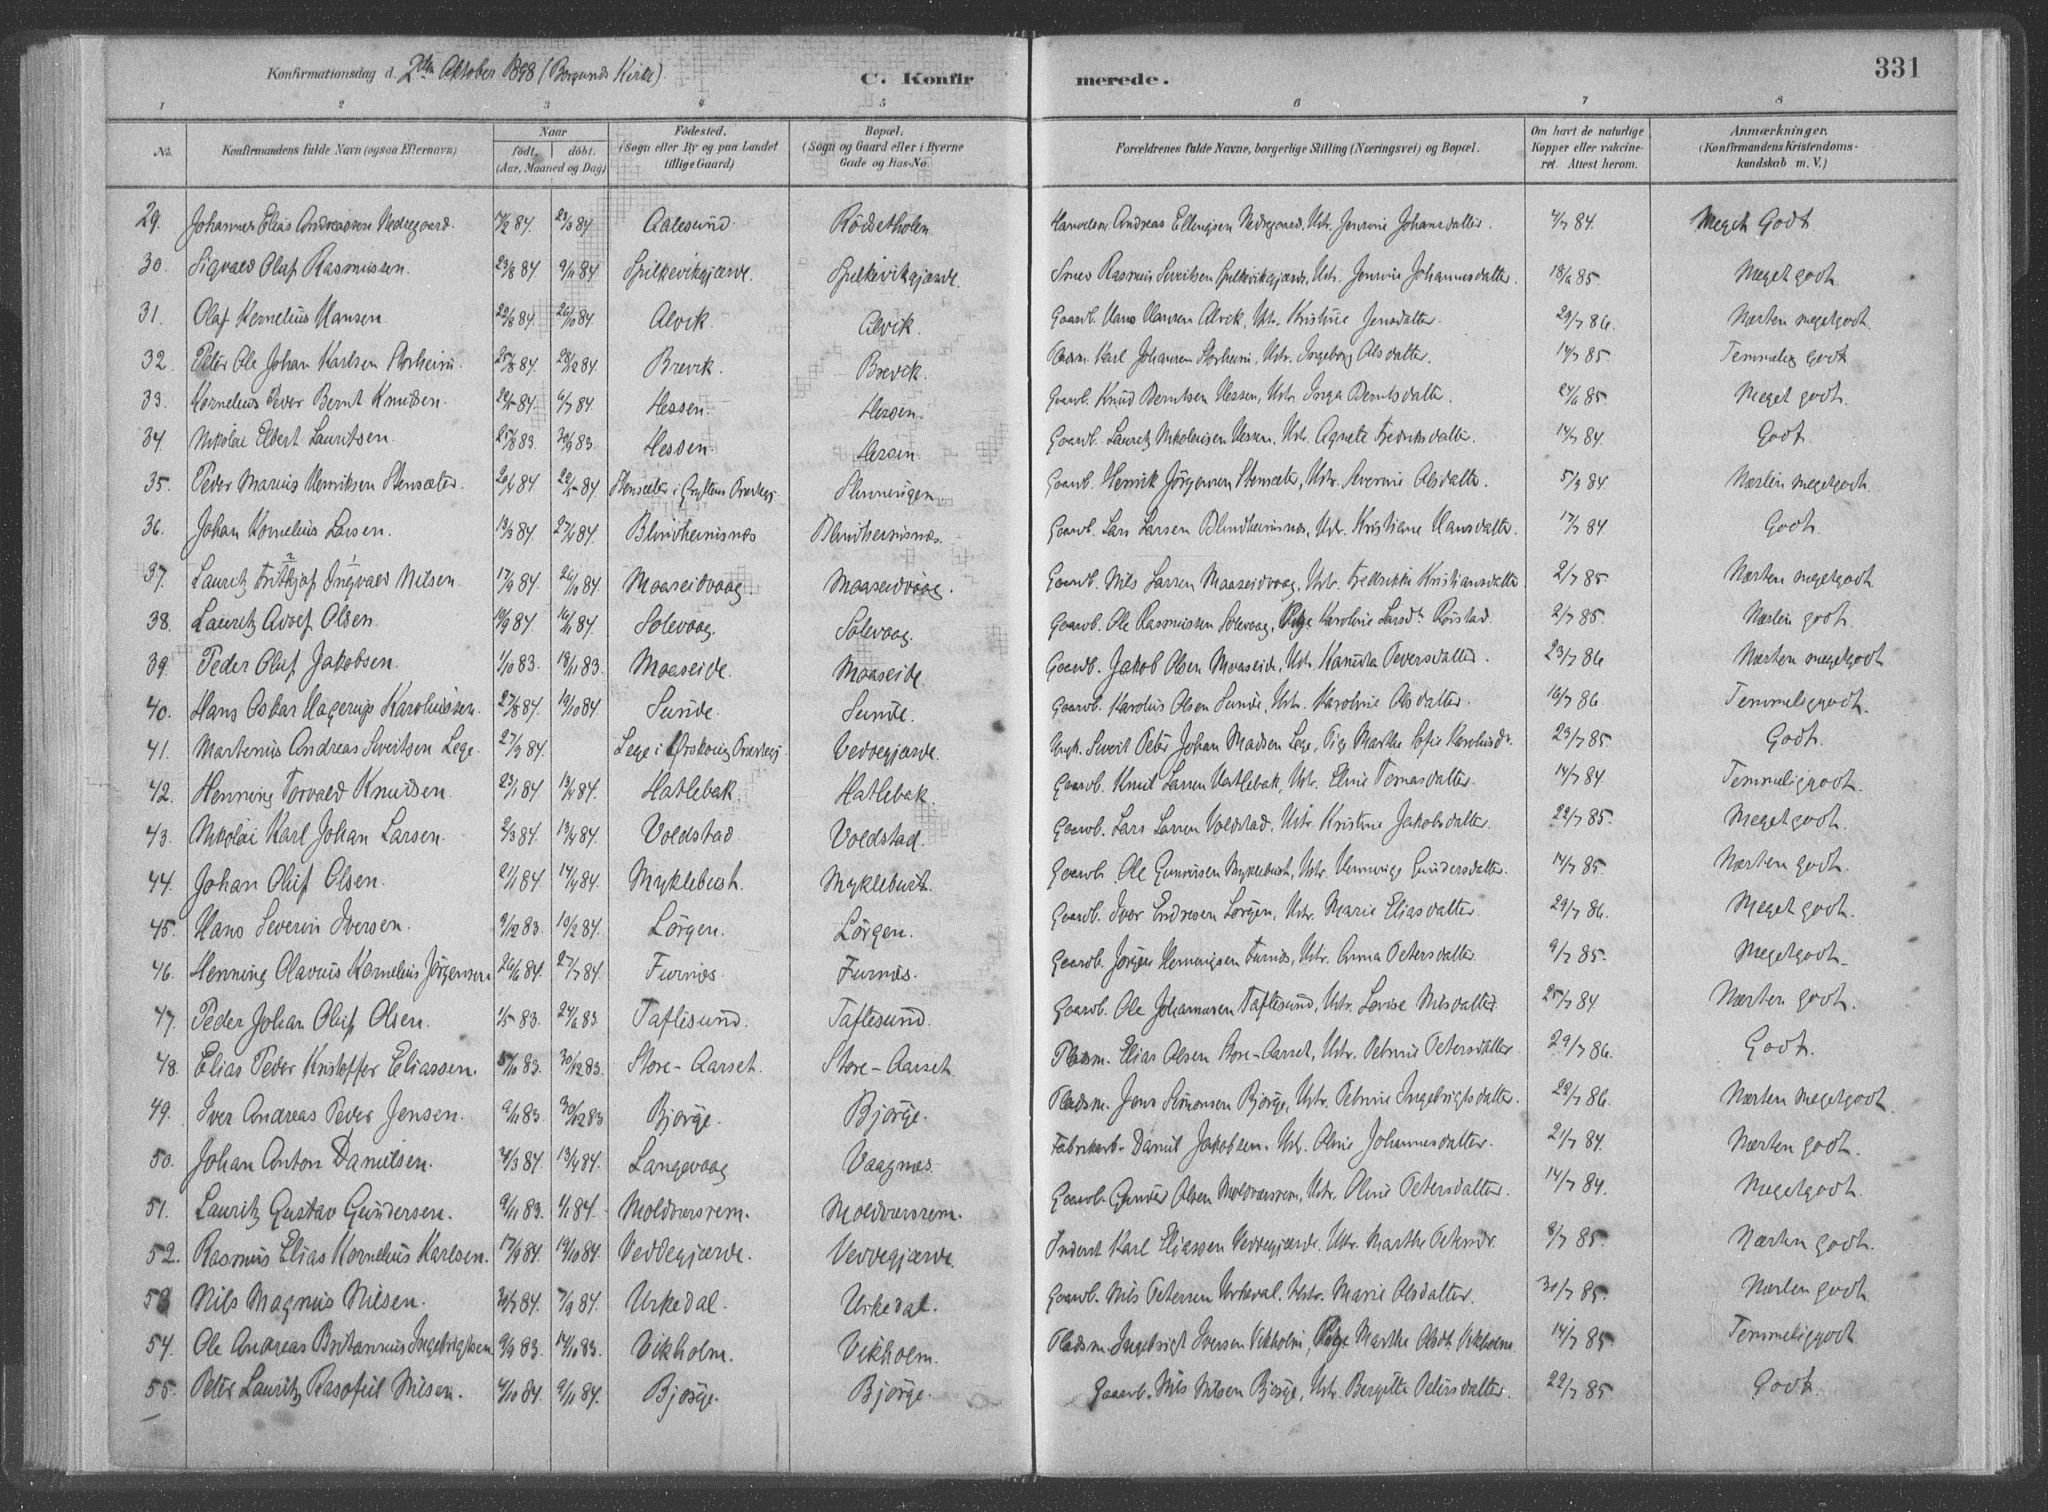 Konfirmationsdag d. 2den Oktober 1898 (Borgunds Kirke).
C. Konfirmerede.
331
1 2 3 4 5 6 7 8
No. Konfirmandens fulde Navn (ogsaa Efternavn) Naar födt, döbt. (Aar, Maaned og Dag) Födested. (Sogn eller By og paa Landet tillige Gaard) Bopæl. (Sogn og Gaard eller i Byerne Gade og Hus-No. Forældrenes fulde Navne, borgerlige Stilling (Næringsvei) og Bopæl. Om havt de naturlige Kopper eller vakcineret. Attest herom. Anmærkninger. (Konfirmandens Kristendomskundskab m. V.)
29. Johannes Elias Andreassen Nedregaard. 84. 23/3 84 Aalesund Rödsetholen Andreas Ellingsen Nedregaard, Ustr. Jensine Johansdatter. 84. Meget Godt
30. Sigvald Oluf Rasmussen. 23/8 84. 9/11 84. Spilkevikgjærde. Spilkevikgjærde. Smed Rasmus Sivertsen Spilkevikgjærde, Ustr. Jensine Johannesdatter. 85. Meget godt.
31. Olaf Kornelius Hansen 22/8 84. 26/10 84. Alvik Alvik. Gaardb. Hans Hansen Alvik, Ustr. Kristine Jensdatter. 29/7 86. Næsten megetgodt.
32. Peter Ole Johan Karlsen Storheim. 25/8 84. 28/12 84. Brevik. Brevik. Pladsm. Karl Johansen Storheim, Ustr. Ingeborg Olsdatter. 14/7 85. Temmelig godt
33. Kornelius Peder Bernt Knudsen. 22/5 84. 6/7 84. Hessen. Hessen. Gaardb. Knud Berntsen Hessen, Ustr. Inga Berntsdatter. 24/6 85 Meget godt.
34. Nikolai Elbert Lauritsen. 25/8 83 30/9 83. Hessen. Hessen. Gaardb. Lauritz Nikolaisen Hessen, Ustr. Agnete Fredriksdatter. 14/7 84. Godt.
35. Peder Marius Henriksen Stensæter. 20/4 84. 22/5 84. Stensæter i Gryttens Præstegj. Slinningen. Gaardb. Henrik Jörgensen Stensæter, Ustr. Severine Olsdatter. 5/9 84 Næsten megetgodt.
36. Johan Kornelius Larsen. 13/3 84. 27/4 84. Blindheimsnæs Blindheimsnæs. Gaardb. Lars Larsen Blindheimsnæs, Ustr. Kristiane Hansdatter. 17/7 84. Godt.
37. Lauritz Frithjof Ingvald Nilsen. 17/9 84. 26/10 84. Maaseidvaag. Maaseidvaag. Gaardb. Nils Larsen Maaseidvaag, Ustr. Fredrikke Kristiansdatter 2/7 85. Næsten megetgodt.
38. Lauritz Adolf Olsen. 10/9 84. 16/11 84. Solevaag. Solevaag. Gaardb. Ole Rasmussen Solevaag, Pige Karoline Larsdr. Rörstad. 2/7 85. Næsten godt.
39. Peder Oluf Jakobsen. 1/10 83. 18/11 83. Maaseide. Maaseide. Gaardb. Jakob Olsen Maaseide, Ustr. Kanuta Pedersdatter. 23/7 86 Næsten megetgodt
40. Hans Oskar Hagerup Karoliussen. 27/8 84. 19/10 84. Sunde. Sunde. Gaardb. Karolius Olsen Sunde, Ustr. Karoline Olsdatter. 16/7 86 Temmeliggodt.
41. Martinus Andreas Sivertsen Lege. 27/3 84. Lege i Ørskoug Præstegj. Veddegjærde. Ungk. Sivert Peter Johan Madsen Lege, Pige Marthe Sofie Karolusdr. 23/7 85 Godt.
42. Henning Torvald Knudsen. 23/1 84. 13/4 84. Hatlebak. Hatlebak. Gaardb. Knut Larsen Hatlebak, Ustr. Eline Tomasdatter. 14/7 84 Temmeliggodt.
43. Nikolai Karl Johan Larsen. 2/3 84. 13/4 84. Voldstad Voldstad. Gaardb. Lars Larsen Voldstad, Ustr. Kristine Jakobsdatter. 22/7 85. Megetgodt.
44. Johan Oluf Olsen. 21/1 84. 14/4 84. Myklebust. Myklebust. Gaardb. Ole Gundersen Myklebust, Ustr. Gundersdatter. 14/7 85. Næsten godt.
45. Hans Severin Iversen. 9/12 83. 10/2 84. Lörgen. Lörgen. Gaardb. Iver Endresen Lörgen, Ustr. Marie Eliasdatter. 29/7 86. Megetgodt.
46. Henning Olavius Kornelius Jörgensen 26/6 84. 27/7 84. Furnæs. Furnæs. Gaardb. Jørgen Henningsen Furnæs, Ustr. Anna Petersdatter. 9/7 85. Megetgodt.
47. Peder Johan Oluf Olsen. 1/5 83. 24/6 83 Taftesund. Taftesund. Gaardb. Ole Johannesen Taftesund, Ustr. Lovise Nilsdatter 25/7 84 Næsten godt.
48. Elias Peder Kristoffer Eliassen. 5/10 83. 30/12 83. Store-Aarset. Store-Aarset. Pladsm. Elias Olsen Store-Aarset, Ustr. Petrine Petersdatter. 29/7 86. Godt.
49. Iver Andreas Peder Jensen. 9/11 83 30/12 83 Bjørge. Bjørge. Pladsm. Jens Simonsen Bjørge, Ustr. Petrine Ingebrigtsdatter. 22/7 86. Næsten megetgodt.
50. Johan Anton Danielsen. 84. 13/4 84. Langevaag Vaagnæs. Fabrikarb. Daniel Jakobsen, Ustr. Oline Johannesdatter. 21/7 84. Næsten godt.
51. Lauritz Gustav Gundersen. 9/11 83. 1/1 84. Moldværsrem. Moldværsrem. Gaardb. Gunder Olsen Moldværsrem, Ustr. Oline Petersdatter. 14/7 84. Megetgodt.
52. Rasmus Elias Kornelius Karlsen. 17/9 84. 19/10 84. Veddegjærde. Veddegjærde. Inderst Karl Eliassen Veddegjærde, Ustr. Marthe Petersdr. 8/7 85. Næsten godt.
53 Nils Magnus Nilsen. 30/7 84. 7/9 84. Urkedal. Urkedal. Gaardb. Nils Petersen Urkedal, Ustr. Marie Olsdatter. 30/7 85. Næsten godt.
54. Ole Andreas Britannus Ingebrigtsen 9/9 83. 14/10 83. Vikholm. Vikholm. Pladsm. Ingebrigt Iversen Vikholm, Pige Marthe Olsdtr. Vikholm. 14/7 85. Temmeliggodt.
55. Peter Lauritz Nilsen. 4/10 84. 9/11 84. Bjørge. Bjørge. Gaardb. Nils Nilsen Bjørge, Ustr. Bergitte Petersdatter. 22/7 85. Godt.